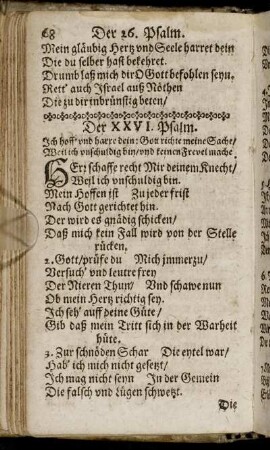 68 Der 26. Psalm.
Mein gläubig Hertz vnd Seele harret dein
Die du selber hast bekehret.
Drumb laß mich dir O Gott befohlen seyn.
Rett' auch Israel auß Nöthen
Die zu dir inbrünstig beten/
Der XXVI. Psalm.
Ich hoff' vnd harre dein: Gott richte meine Sache/
Weil ich vnschuldig bin/ vnd keinen Frevel mache.
HErr schaffe recht Mir deinem Knecht/
Weil ich vnschuldig bin.
Mein Hoffen ist Zu jeder frist
Nach Gott gerichtet hin.
Der wird es gnädig schicken/
Daß mich kein Fall wird von der Stelle
rücken.
2. Gott/ prüfe du Mich jmmerzu/
Versuch' vnd leutre frey
Der Nieren Thun/ Vnd schawe nun
Ob mein Hertz richtig sey.
Ich seh' auff deine Güte/
Gib daß mein Tritt sich in der Warheit
hüte.
3. Zur schnöden Schar Die eytel war/
Hab' ich mich nicht gesetzt/
Ich mag nicht seyn In der Gemein
Die falsch vnd Lügen schwetzt.
Die